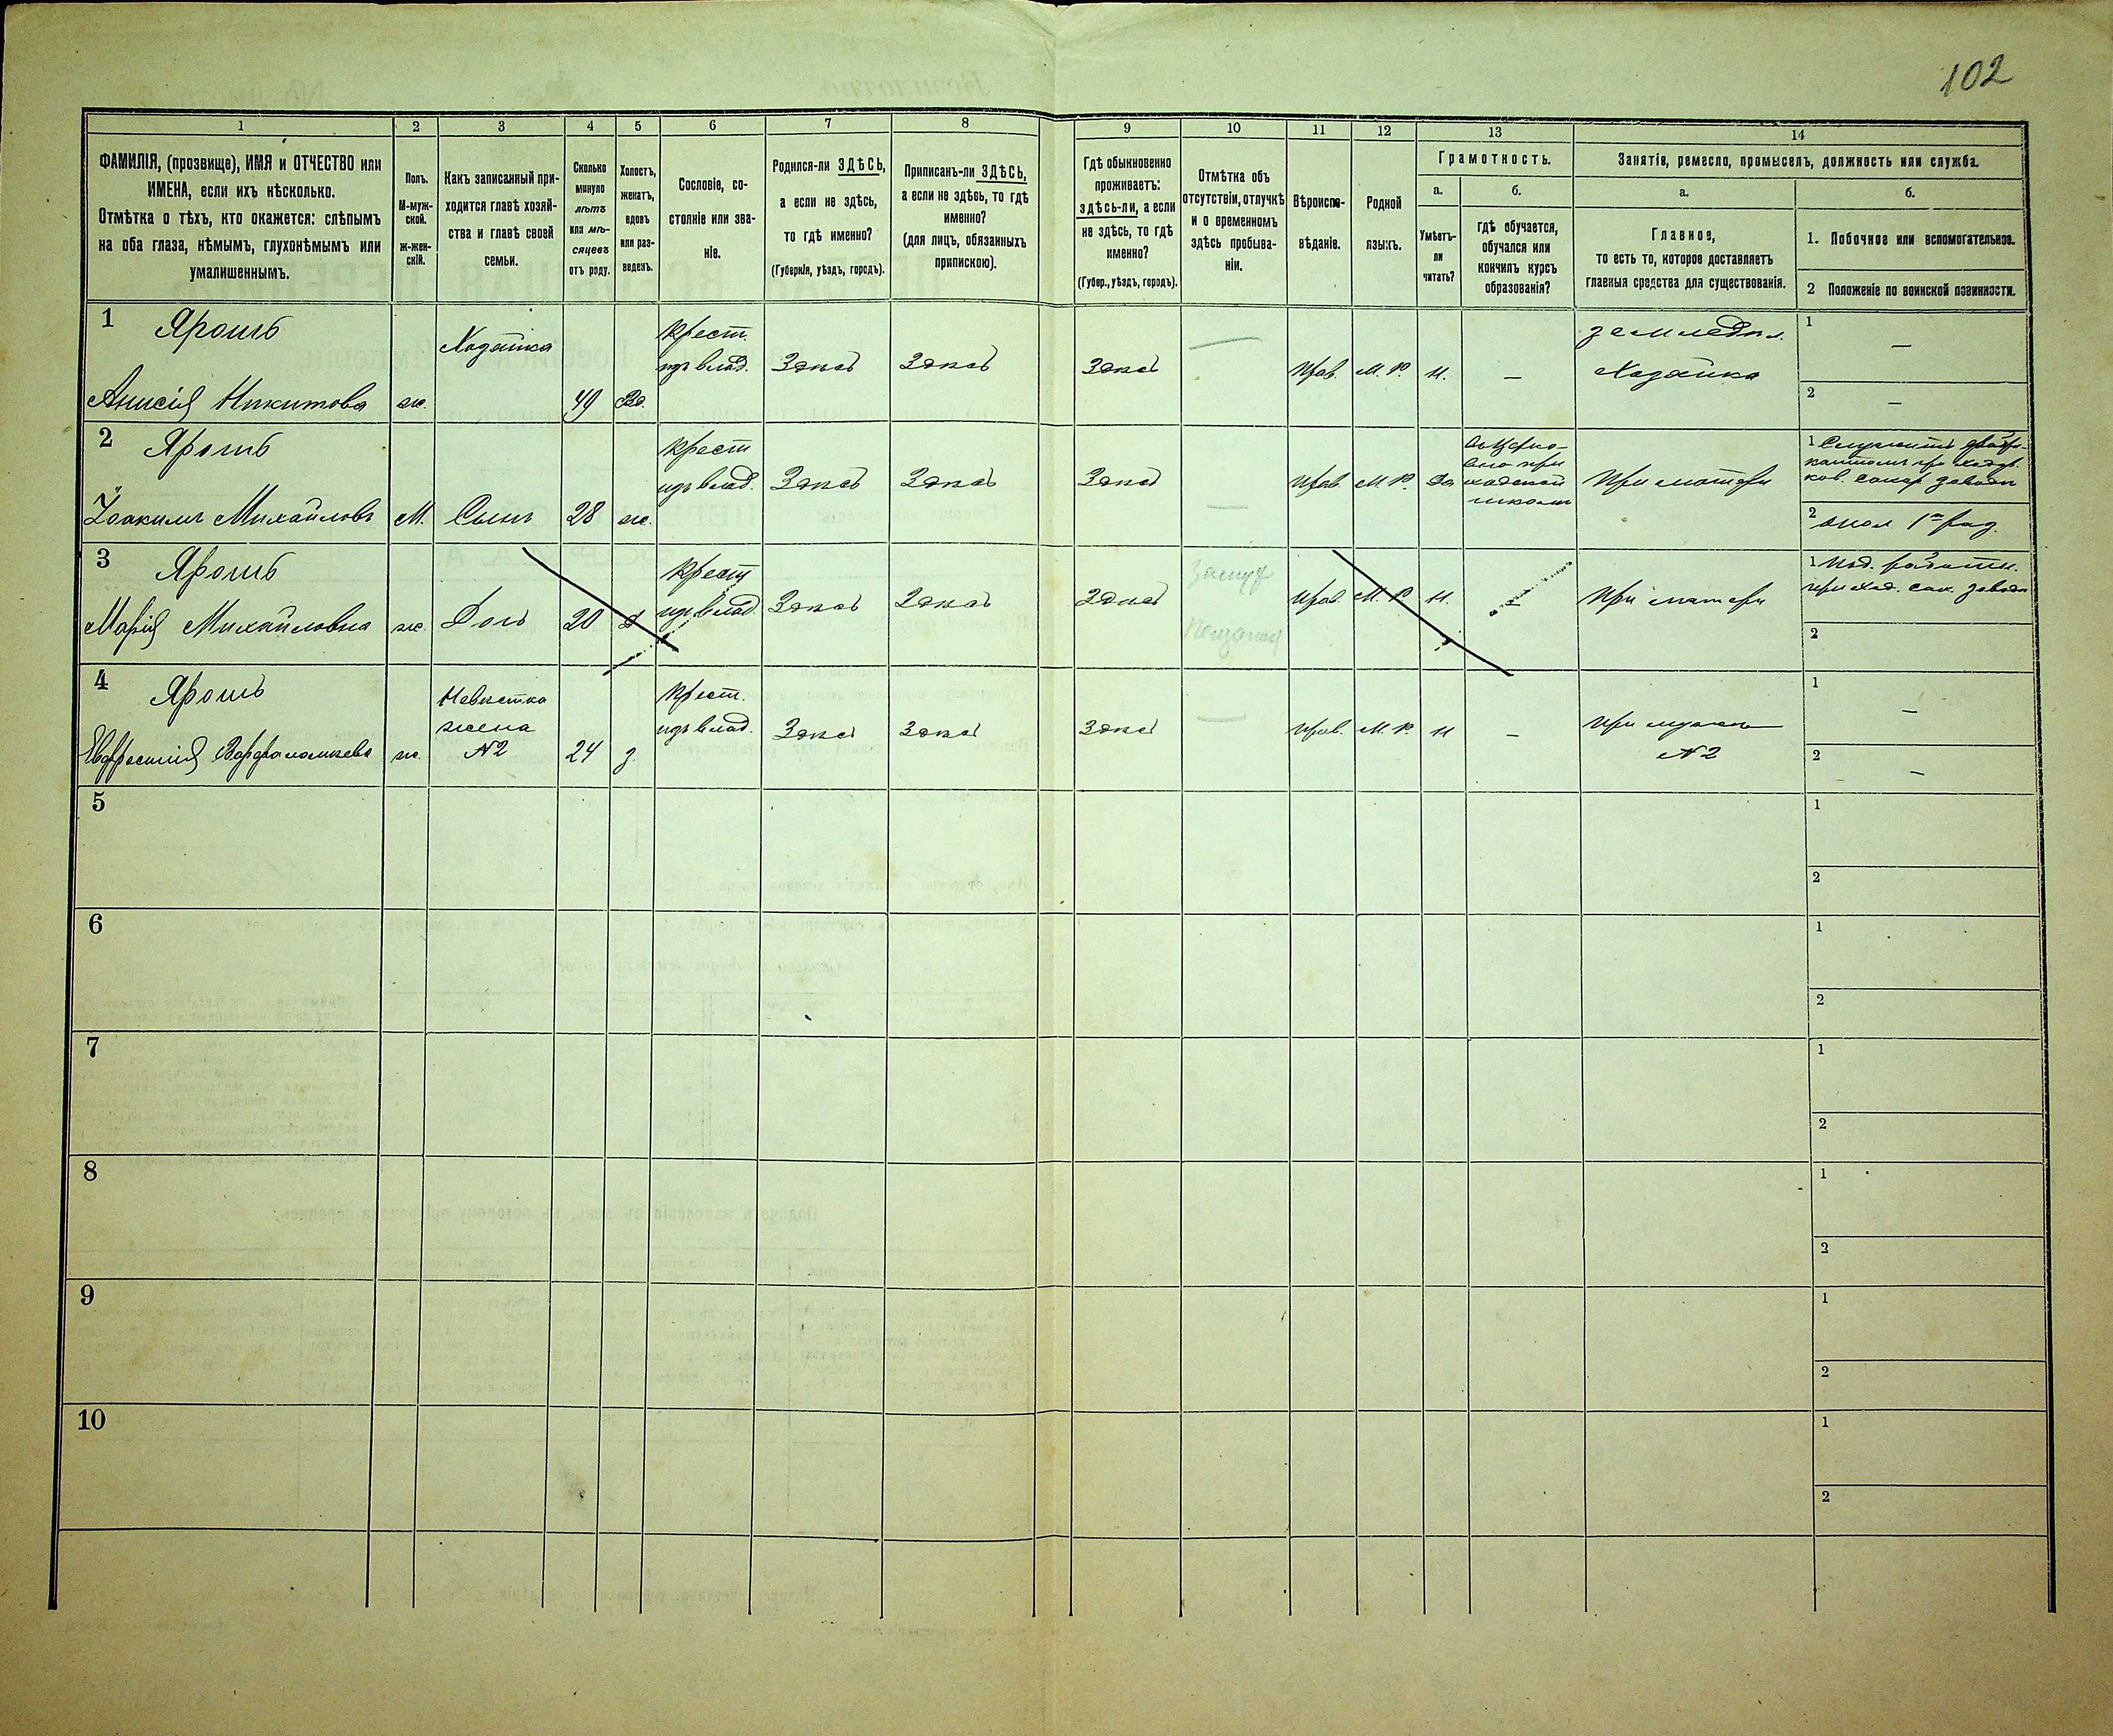 102
1 2 3 4 5 6 7 8 9 10 11 12 13 14
ФАМИЛІЯ, (прозвище), ИМЯ и ОТЧЕСТВО или
ИМЕНА, если ихъ нѣсколько.
Отмѣтка о тѣхъ, кто окажется: слѣпымъ
на оба глаза, нѣмымъ, глухонѣмымъ или
умалишеннымъ.
Полъ.
М-муж-
ской.
ж-жен-
скій.
Какъ записанный при-
ходится главѣ хозяй-
ства и главѣ своей
семьи.
Сколько
минуло
лѣтъ
или мѣ-
сяцевъ
отъ роду.
Холостъ,
женатъ,
вдовъ
или раз-
веденъ.
Сословіе, со-
стояніе или зва-
ніе.
Родился-ли ЗДѢСЬ,
а если не здѣсь,
то гдѣ именно?
(Губернія, уѣздъ, городъ).
Приписанъ-ли ЗДѢСЬ,
а если не здѣсь, то гдѣ
именно?
(для лицъ, обязанныхъ
припискою).
Гдѣ обыкновенно
проживаетъ:
здѣсь-ли, а если
не здѣсь, то гдѣ
именно?
(Губер., уѣздъ, городъ).
Отмѣтка объ
отсутствіи, отлучкѣ
и о временномъ
здѣсь пребыва-
ніи.
Вѣроиспо-
вѣданіе.
Родной
языкъ.
Грамотность.
а.
Умѣетъ-
ли
читать?
б.
гдѣ обучается,
обучался или
кончилъ курсъ
образованія?
Занятіе, ремесло, промыселъ, должность или служба.
а.
Главное,
то есть то, которое доставляетъ
главныя средства для существованія.
б.
1. Побочное или вспомогательное.
2 Положеніе по воинской повинности.
1 Ярошъ
Анисія Никитова
ж.
Хозяйка
49
Вд.
крест.
изъ влад.
Здѣсь
Здѣсь
Здѣсь
—
Прав.
М. Р.
н.
—
земледѣл.
Хозяйка
1
—
2
—
2 Ярошъ
Іоакимъ Михайловъ
М.
Сынъ
28
ж.
крест
изъ влад.
Здѣсь
Здѣсь
Здѣсь
—
Прав.
М. Р.
Да
въ церко-
вно при
ходской
школѣ
При матери
1 Служитъ
сахар заводѣ
2
3 Ярошъ
Марія Михайловна
ж.
Дочь
20
д
крест
изъ влад.
Здѣсь
Здѣсь
Здѣсь
Прав.
М. Р.
н.
—
При матери
1 Под. работн.
при сах. заводѣ
2
4 Ярошъ
Евфросинія Варфоломѣева
ж.
Невѣстка
жена
№2
24
з.
крест.
изъ влад.
Здѣсь
Здѣсь
Здѣсь
—
Прав.
М. Р.
н
—
При мужѣ
№2
1
—
2
—
5
1
2
6
1
2
7
1
2
8
1
2
9
1
2
10
1
2